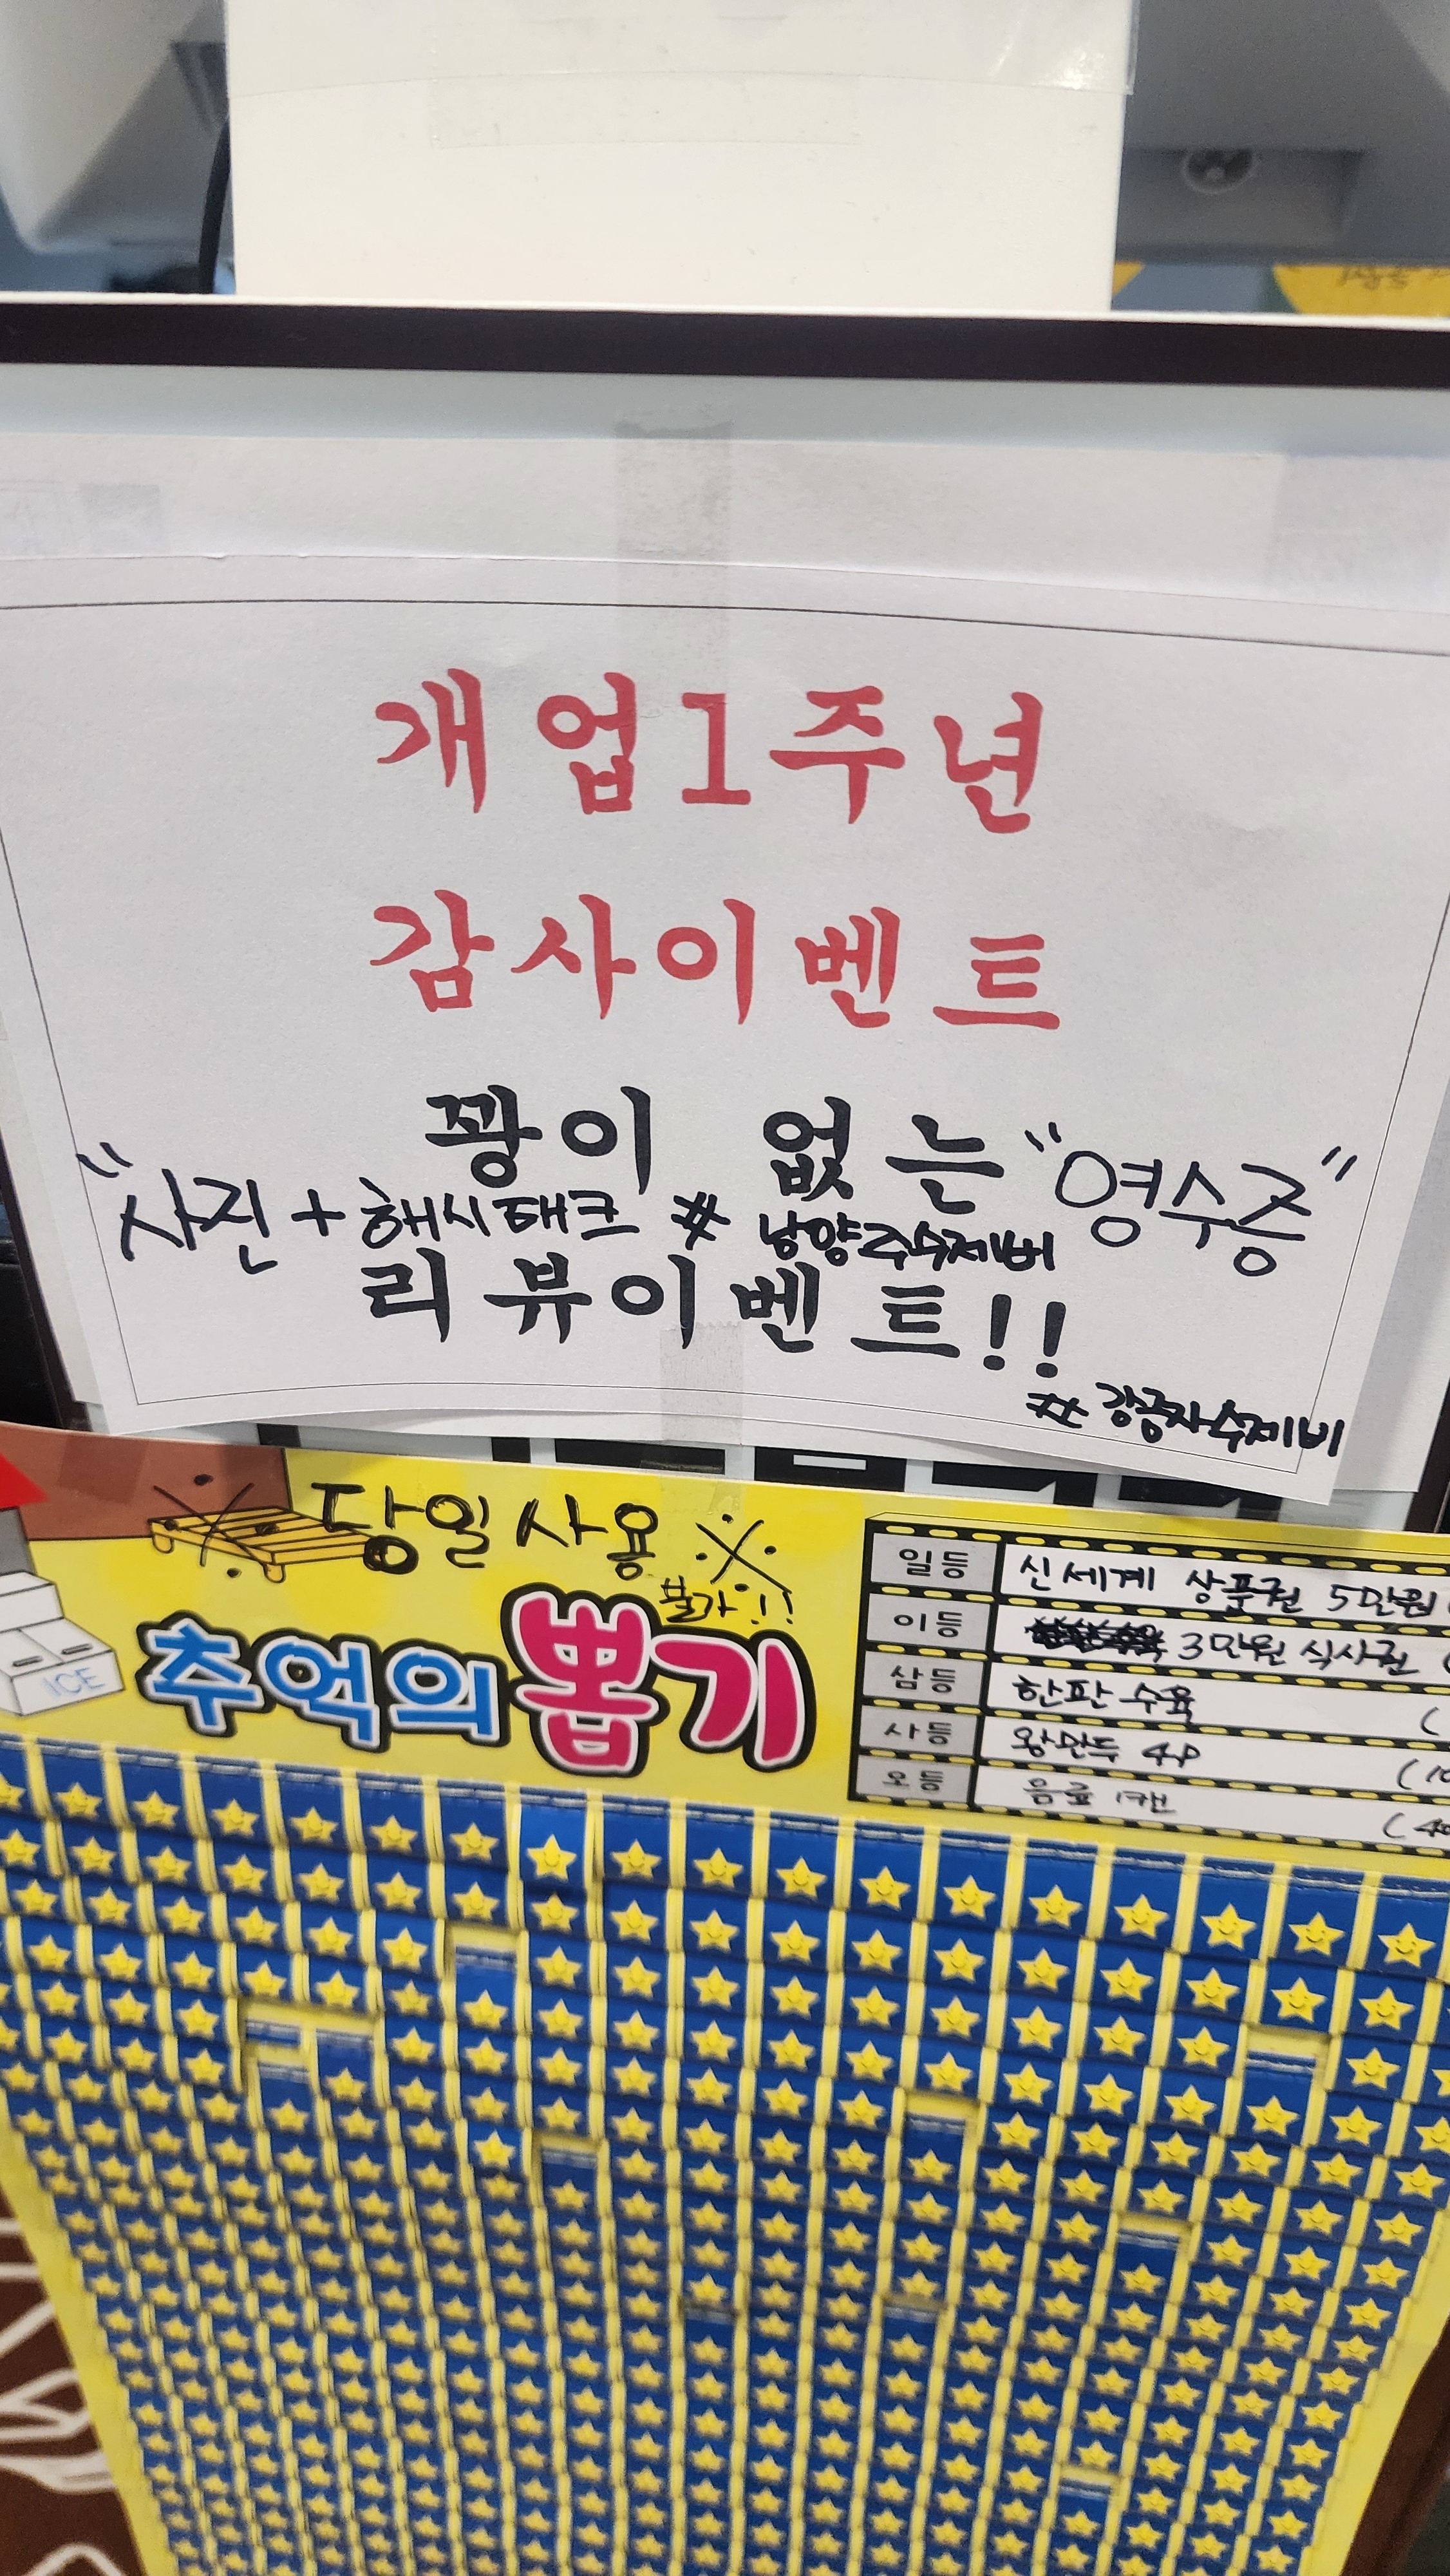 개업1주년
감사이벤트
꽝이 없는 "영수증"
"사진 + 해시태크 # 남양주수제비
리뷰이벤트!!
# 강종자수제비
※ 당일사용 ※
불가!!
추억의 뽑기
ICE
일등 신세계 상품권 5만원
이등 3만원 식사권 (
삼등 한판 수육 (
사등 왕만두 4P (10
오등 음료 1캔 (40